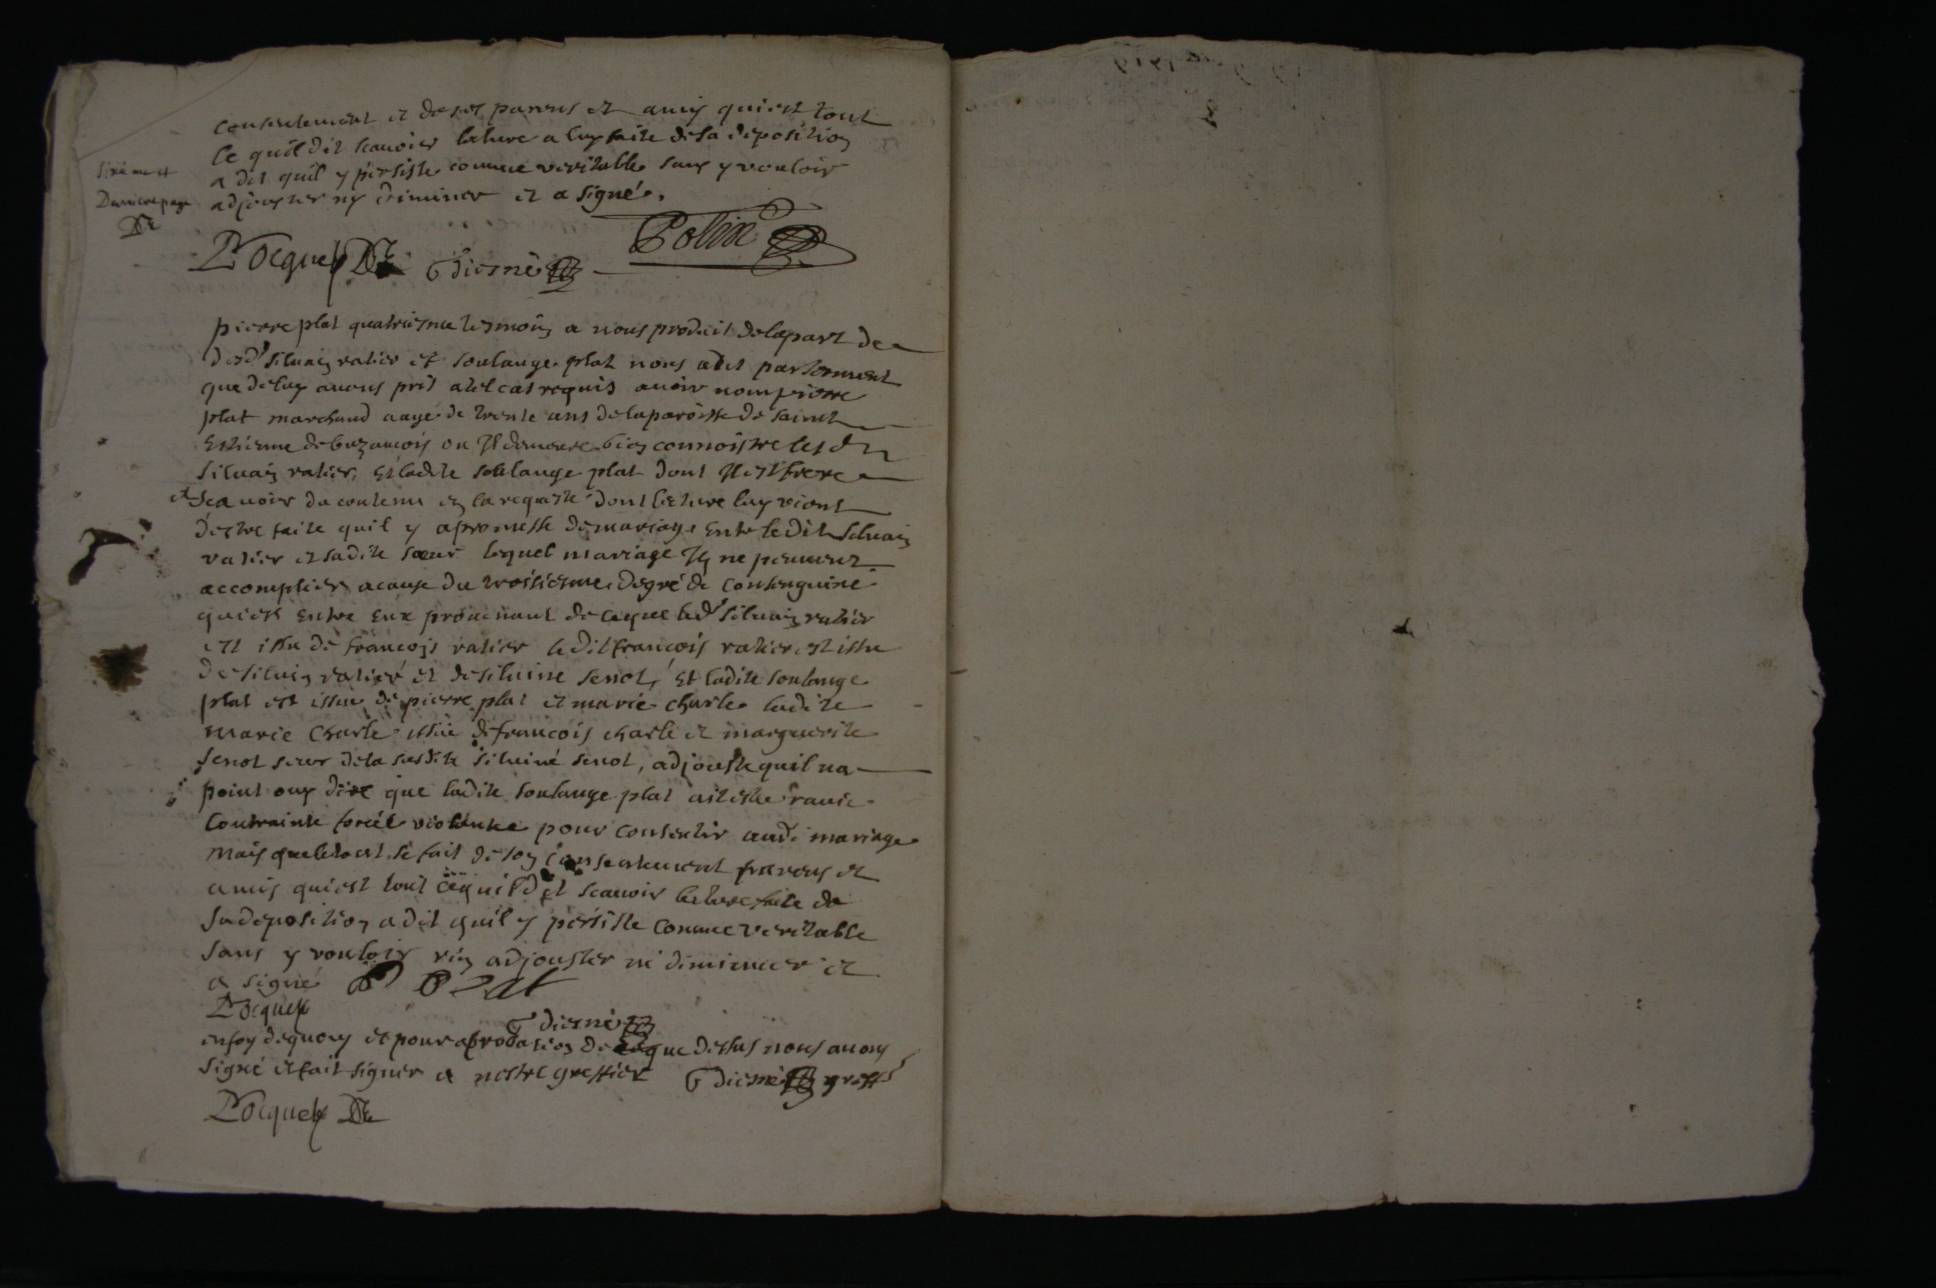 consentement et de ses parens et amis qui est tout
ce quil dit scauoir lecture a luy faite de sa deposition
a dit quil y persiste comme veritable sans y vouloir
adjouster ny diminuer et a signé.
Sixie me et
Derniere page
Polin
P Jocquet
G diesne
pierre plat quatriesme tesmoin a nous produit de la part de
desd. siluain ratier et soulange plat nous a dit par serment
que de luy auons pris a tel cas requis auoir nom pierre
plat marchand aagé de trente ans de la paroisse de sainct
Estienne de buzancois ou Il demeure bien connoistre lesd
siluain ratier, Et ladite soulange plat dont Il est frere
et scauoir du contenu en la requeste dont lecture luy vient
destre faite quil y a promesse de mariage Entre ledit siluain
ratier et sadite sœur lequel mariage Ils ne peuuent
accomplier a cause du troisiesme degré de consenguiné
qui est Entre Eux prouenant de ce que led. siluain ratier
est issu de francois ratier ledit francois ratier est issu
de siluain ratier et de siluine senot, Et ladite soulange
plat est issue de pierre plat et marie charle ladite
marie Charle issue de francois charle et marguerite
senot seur de la susdite siluine senot, adjouste quil na
point ouy dire que ladite soulange plat ait este rauie
Contrainte forcée violentee pour consentir aud. mariage
mais que le tout se fait de son consentement parens et
amis qui est tout ce quil dit scauoir lecture faite de
sa deposition a dit quil y persiste comme veritable
sans y vouloir rien adjouster ni diminuer et
a signé P Plat
P Jocquet
G diesne
en foy de quoy et pour aprobation de ce que dessus nous auons
signé et fait signer a nostre greffier G diesne greff
P Jocquet